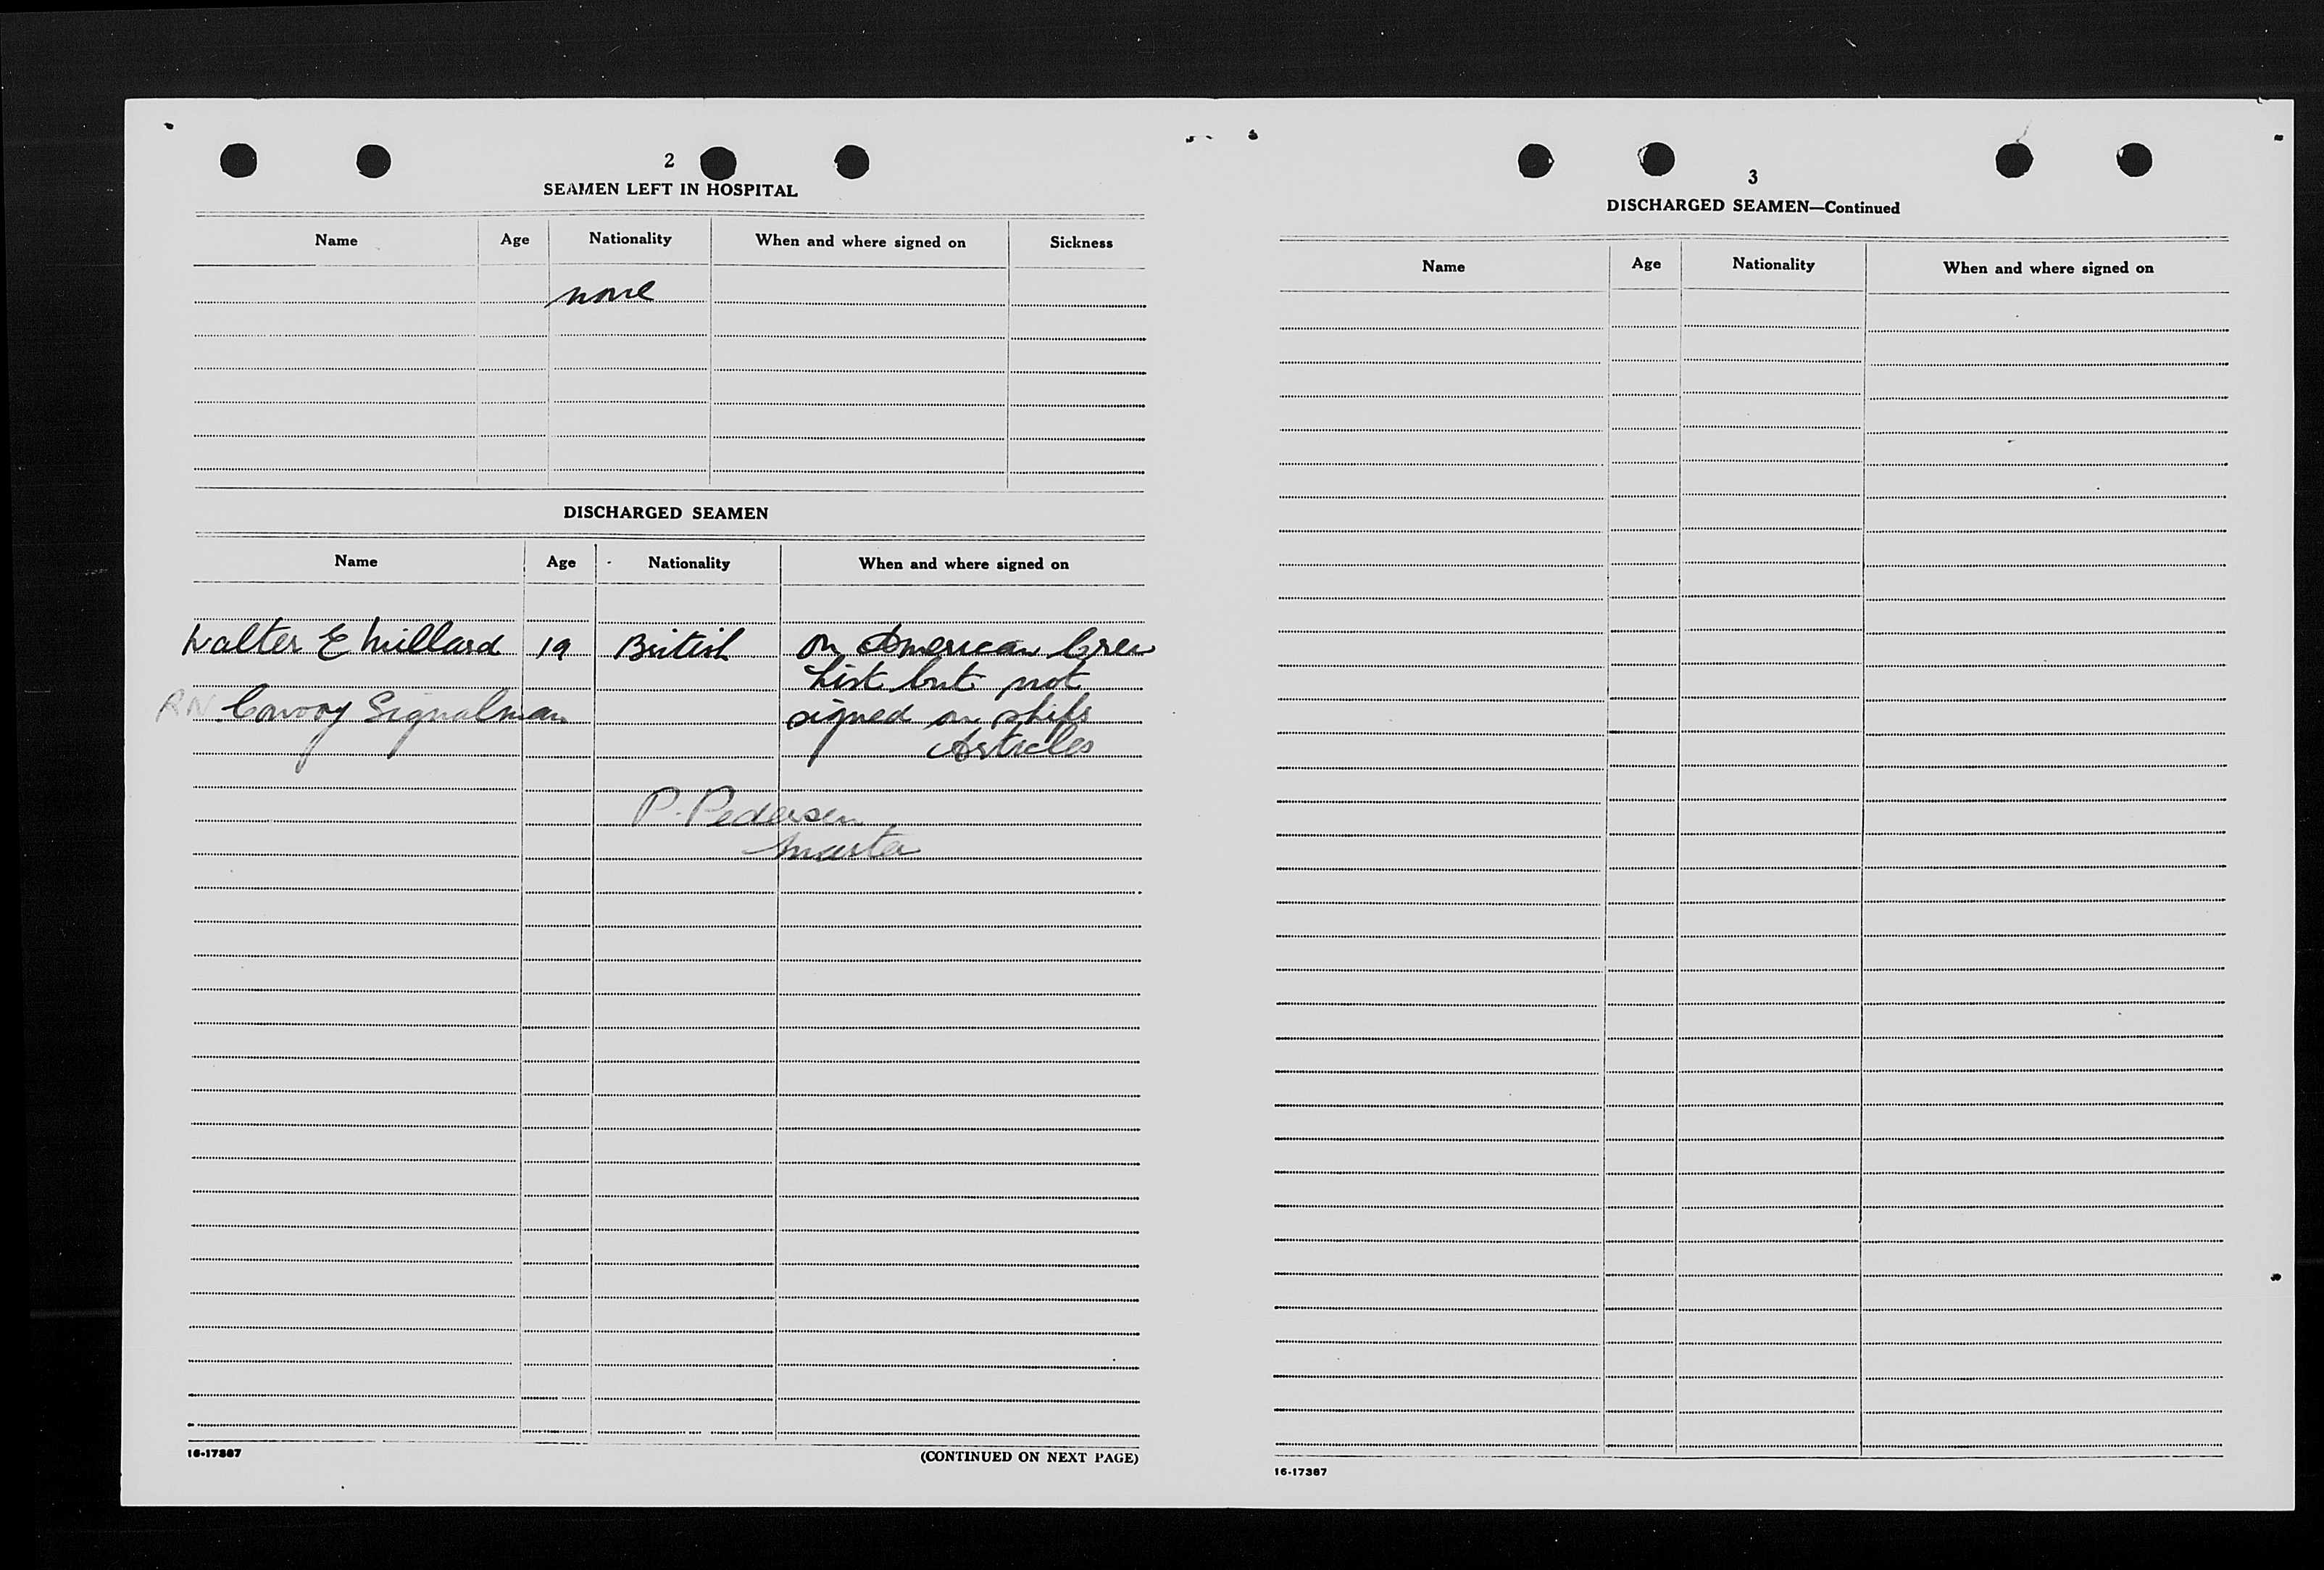 2
SEAMEN LEFT IN HOSPITAL
Name Age Nationality When and where signed on Sickness
none
DISCHARGED SEAMEN
Name Age Nationality When and where signed on
Walter E Millard 19 British On American Crew
List but not
RN Convoy Signalman signed on ships
Articles
P. Pedersen
Master
16-17387
(CONTINUED ON NEXT PAGE)
3
DISCHARGED SEAMEN—Continued
Name Age Nationality When and where signed on
16-17387